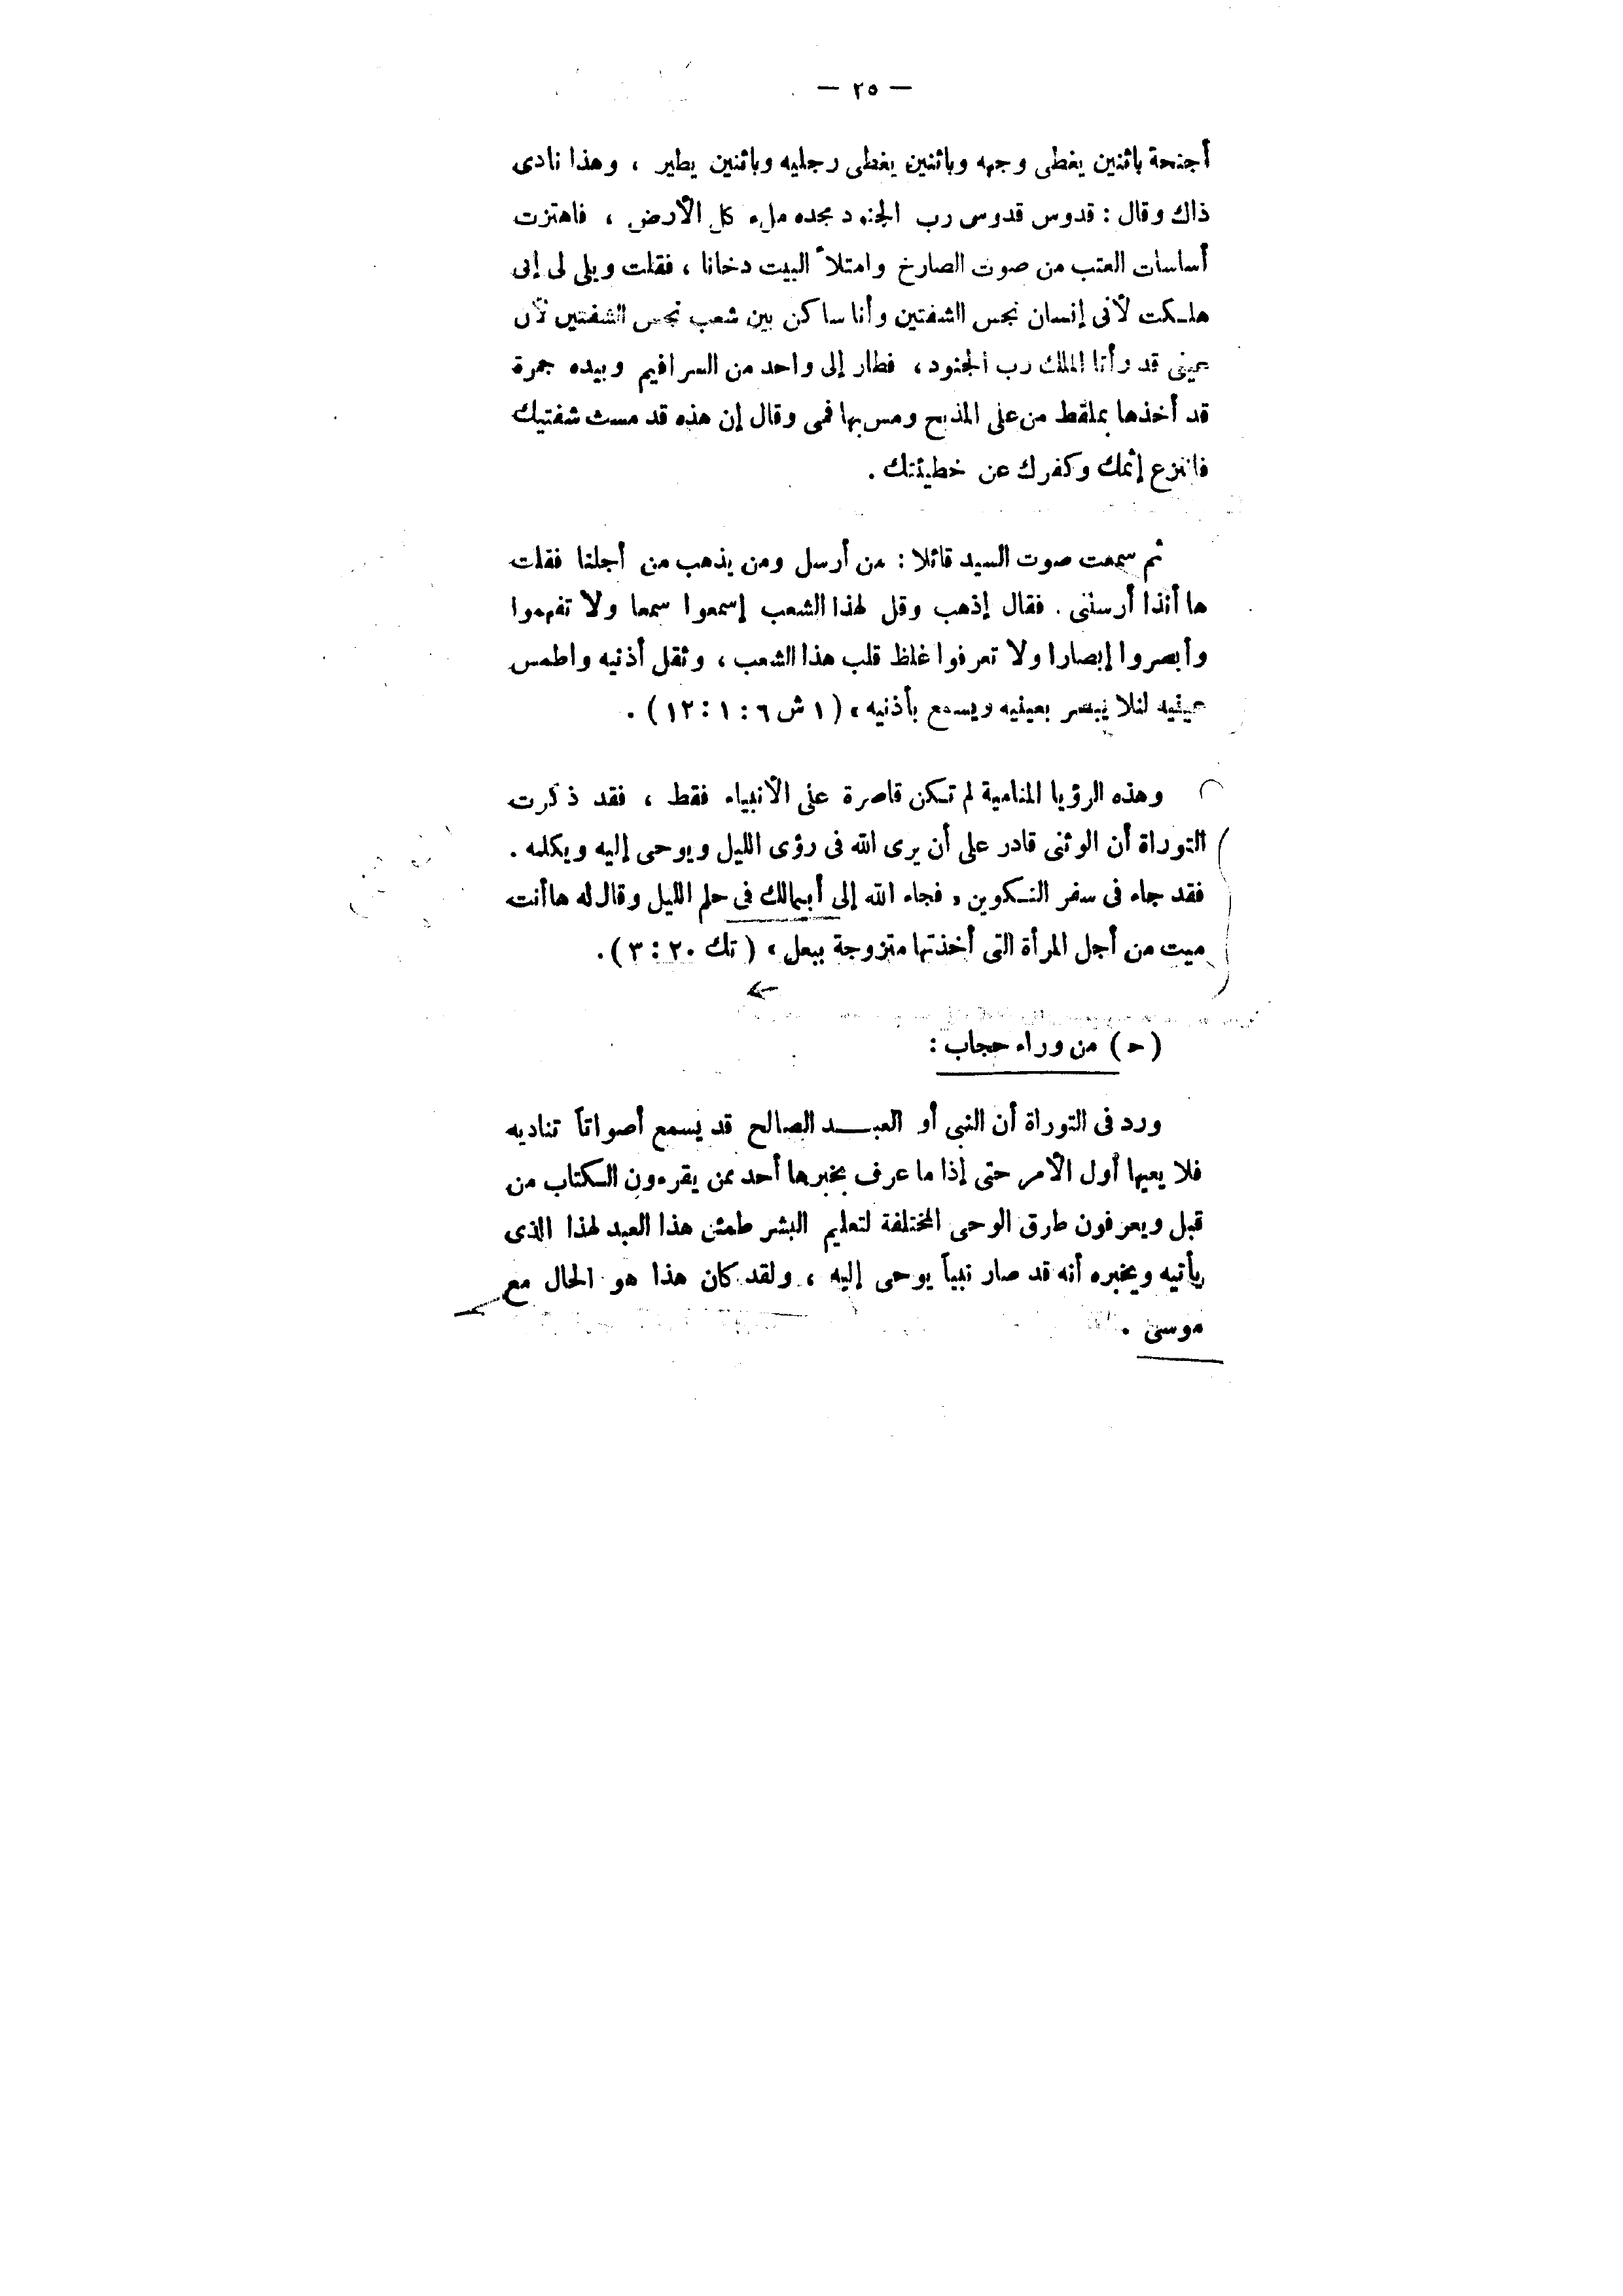 — ٢٥ —
أجنحة باثنين يغطى وجهه وباثنين يغطى رجليه وباثنين يطير ، وهذا نادى
ذاك وقال : قدوس قدوس رب الجنود مجده ملء كل الأرض ، فاهتزت
أساسات العتب من صوت الصارخ وامتلأ البيت دخانا ، فقلت ويلى لى إنى
هلكت لأنى إنسان نجس الشفتين وأنا ساكن بين شعب نجس الشفتين لأن
عينى قد رأتا الملك رب الجنود ، فطار إلى واحد من السرافيم وبيده جمرة
قد أخذها بملقط من على المذبح ومس بها فمى وقال إن هذه قد مست شفتيك
فانتزع إثمك وكفرك عن خطيئتك .
ثم سمعت صوت السيد قائلا : من أرسل ومن يذهب من أجلنا فقلت
ها أنذا أرسلنى . فقال إذهب وقل لهذا الشعب إسمعوا سمعا ولا تفهموا
وأبصروا إبصارا ولا تعرفوا غلظ قلب هذا الشعب ، وثقل أذنيه واطمس
عينيه لئلا يبصر بعينيه ويسمع بأذنيه ، ( ١ ش ٦ : ١ : ١٢ ) .
وهذه الرؤيا المنامية لم تكن قاصرة على الأنبياء فقط ، فقد ذكرت
التوراة أن الوثنى قادر على أن يرى الله فى رؤى الليل ويوحى إليه ويكلمه .
فقد جاء فى سفر التكوين « فجاء الله إلى أبيمالك فى حلم الليل وقال له ها أنت
ميت من أجل المرأة التى أخذتها متزوجة ببعل » ( تك ٢٠ : ٣ ) .
( ح ) من وراء حجاب :
ورد فى التوراة أن النبى أو العبد الصالح قد يسمع أصواتاً تناديه
فلا يعيها أول الأمر حتى إذا ما عرف بخبرها أحد ممن يقرءون الكتاب من
قبل ويعرفون طرق الوحى المختلفة لتعليم البشر طمئن هذا العبد لهذا الذى
يأتيه ويخبره أنه قد صار نبياً يوحى إليه ، ولقد كان هذا هو الحال مع
موسى .